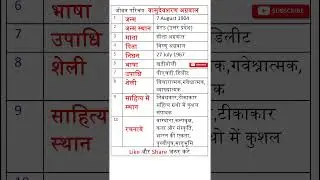 जीवन परिचय वासुदेवशरण अग्रवाल
1 जन्म 7 August 1904
2 जन्म स्थान मेरठ (उत्तर प्रदेश)
3 माता सीता अग्रवाल
4 पिता विष्णु अग्रवाल
5 निधन 27 July 1967
6 भाषा खड़ीबोली
7 उपाधि पीएचडी,डिलीट
8 शैली विचारात्मक,गवेश्नात्मक,
व्याख्यात्मक
9 साहित्य में
स्थान
निबंधकार,टीकाकार
साहित्य ग्रंथो में कुशल
संपादक
10
रचनाये
कला और संस्कृति,
भारत की एकता,
Like और Share जरूर करे
6 भाषा
7 उपाधि
8 शैली
9 साहित्य
स्थान
डिलीट
,गवेश्नात्मक,
,टीकाकार
थो में कुशल